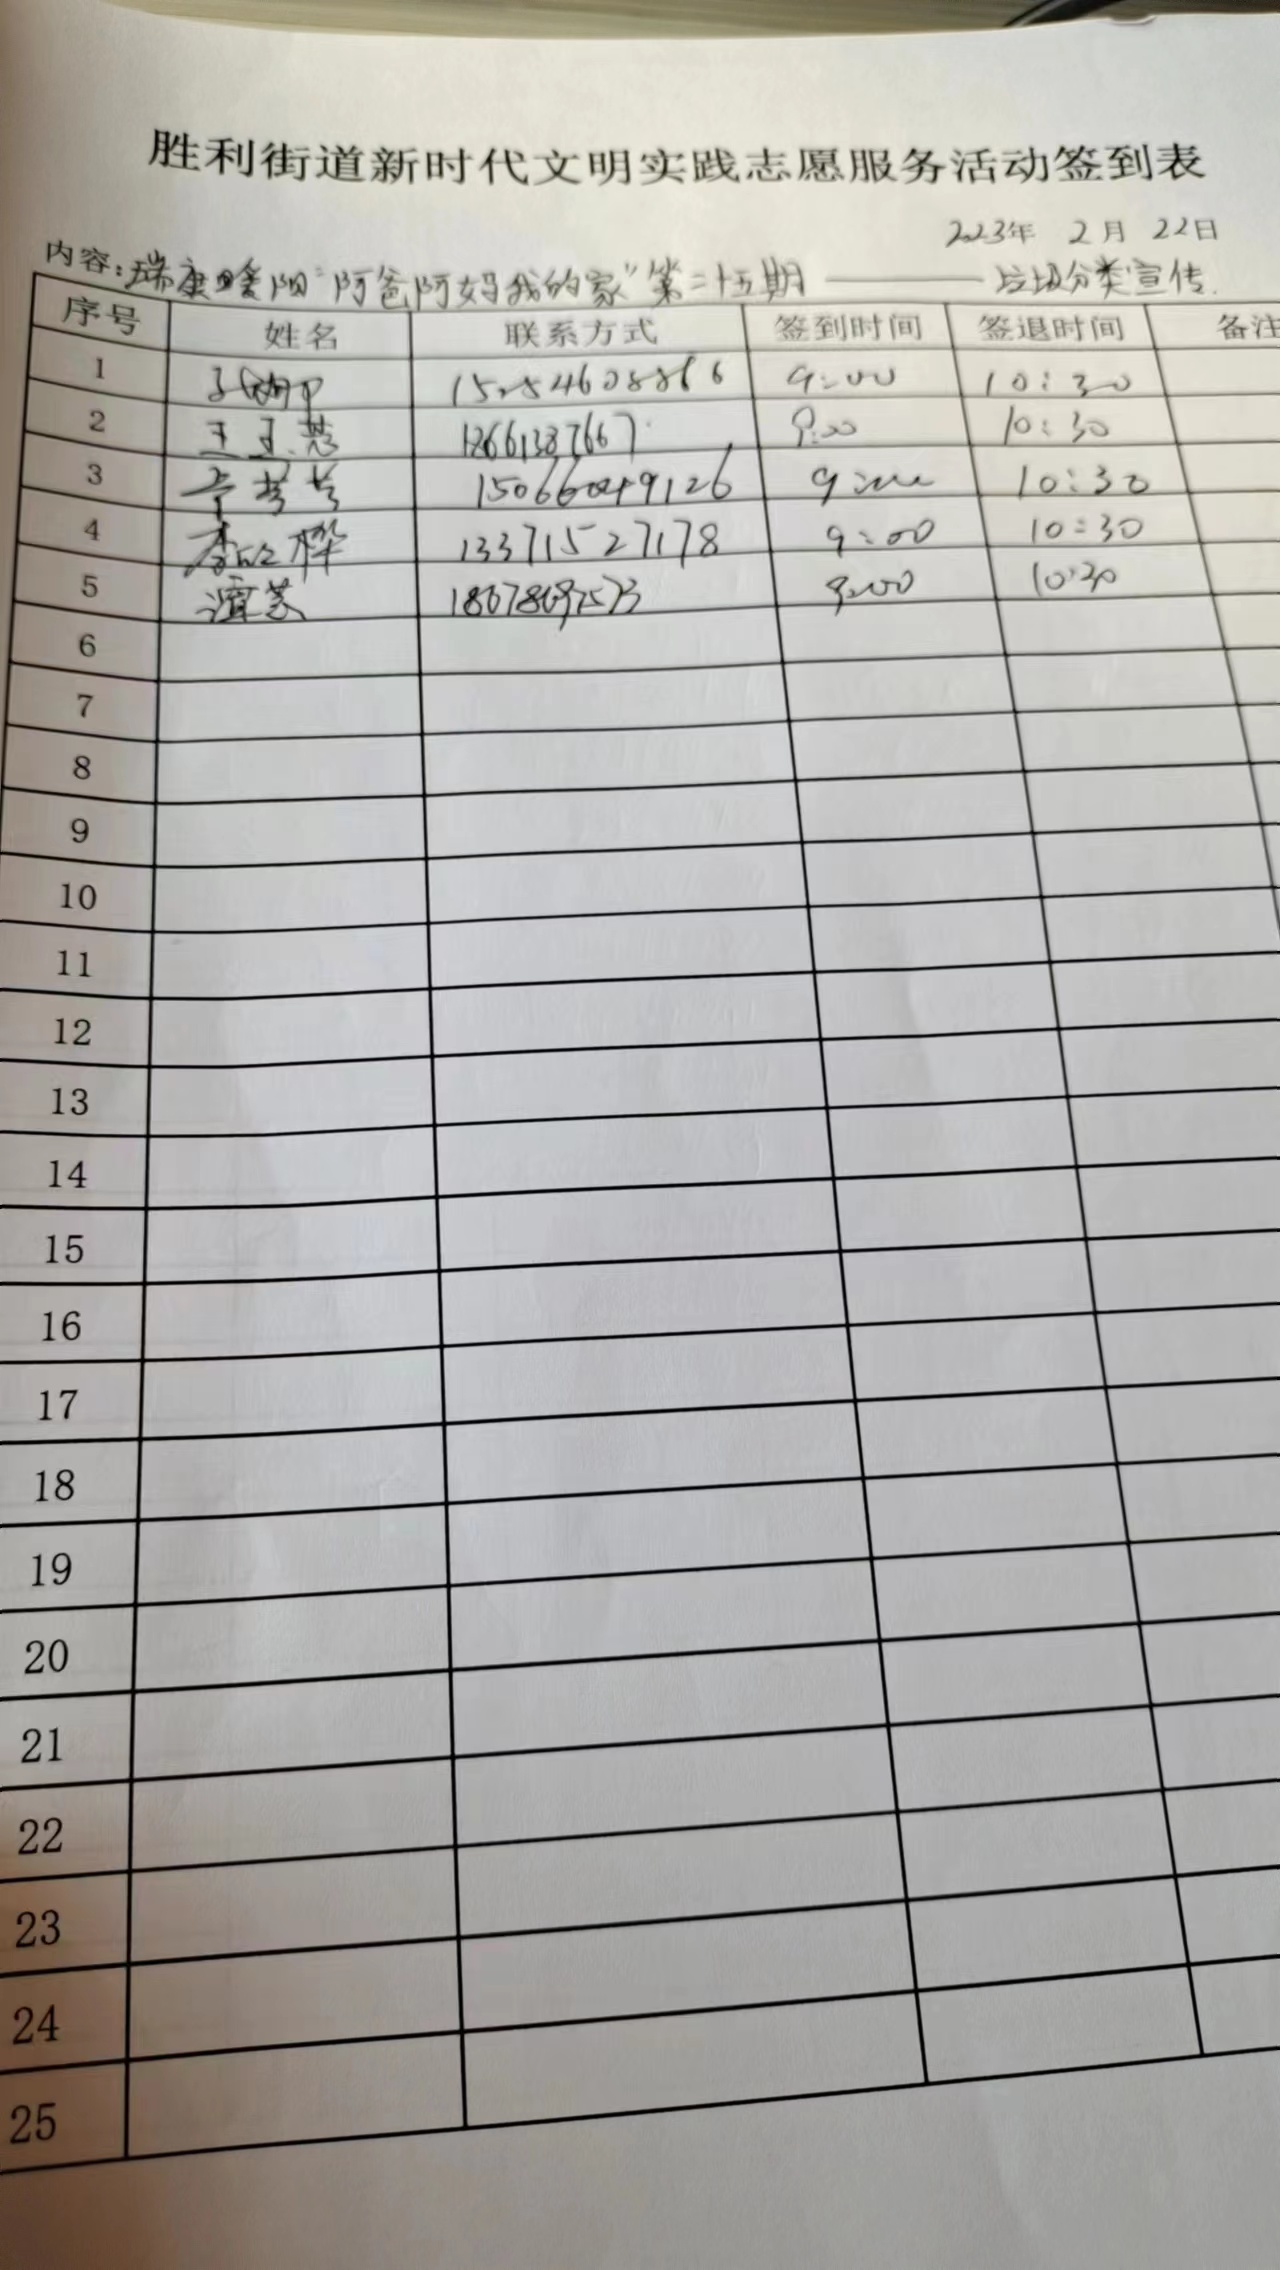 胜利街道新时代文明实践志愿服务活动签到表
2023年 2月 22日
内容:瑞康暖阳"阿爸阿妈我的家"第二十五期——垃圾分类宣传.
序号 姓名 联系方式 签到时间 签退时间 备注
1 9:00 10:30
2 9:00 10:30
3 15066049126 9:00 10:30
4 13371527178 9:00 10:30
5 谭芸 9:00 10:30
6
7
8
9
10
11
12
13
14
15
16
17
18
19
20
21
22
23
24
25